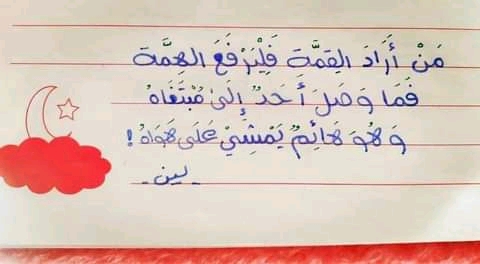 مَنْ أَرَادَ القِمَّة فَلْيَرْفَعَ الهِمَّة
فَمَا وَصَلَ أَحَدٌ إِلَىٰ مُبْتَغَاهُ
وَهُوَ هَائِمٌ يَمْشِيْ عَلَى هَوَاهُ!
-لين-